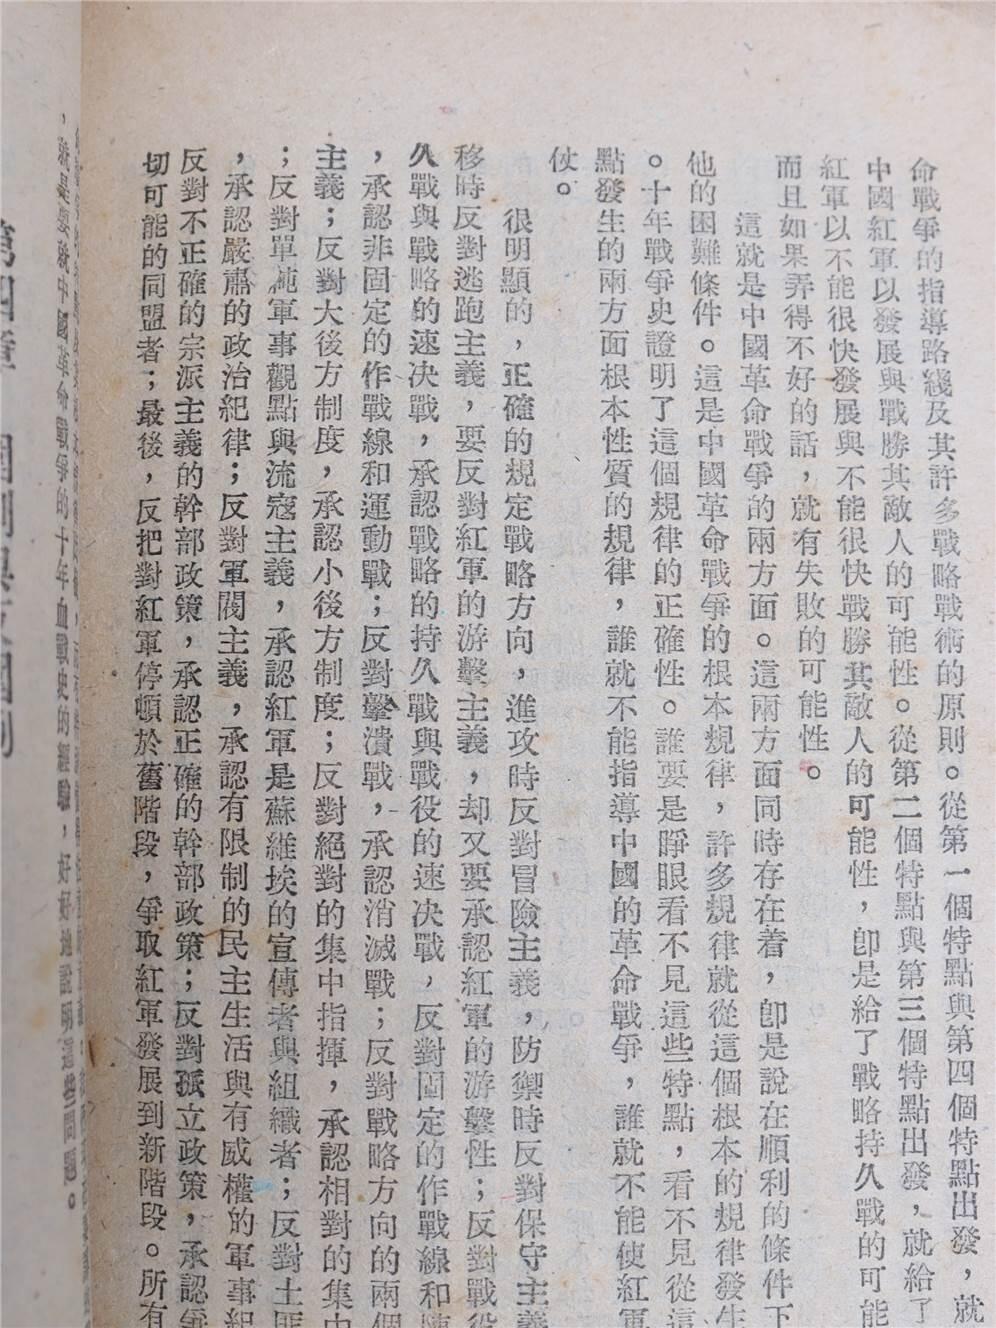 命戰爭的指導路綫及其許多戰略戰術的原則。從第一個特點與第四個特點出發，就
中國紅軍以發展與戰勝其敵人的可能性。從第二個特點與第三個特點出發，就給了
紅軍以不能很快發展與不能很快戰勝其敵人的可能性，卽是給了戰略持久戰的可能
而且如果弄得不好的話，就有失敗的可能性。
這就是中國革命戰爭的兩方面。這兩方面同時存在着，卽是說在順利的條件下
他的困難條件。這是中國革命戰爭的根本規律，許多規律就從這個根本的規律發生
。十年戰爭史證明了這個規律的正確性。誰要是睜眼看不見這些特點，看不見從這
點發生的兩方面根本性質的規律，誰就不能指導中國的革命戰爭，誰就不能使紅軍
仗。
很明顯的，正確的規定戰略方向，進攻時反對冒險主義，防禦時反對保守主義
移時反對逃跑主義，要反對紅軍的游擊主義，却又要承認紅軍的游擊性；反對戰役
久戰與戰略的速決戰，承認戰略的持久戰與戰役的速決戰，反對固定的作戰線和陣
，承認非固定的作戰線和運動戰；反對擊潰戰，承認消滅戰；反對戰略方向的兩個
主義；反對大後方制度，承認小後方制度；反對絕對的集中指揮，承認相對的集中
；反對單純軍事觀點與流寇主義，承認紅軍是蘇維埃的宣傳者與組織者；反對土匪
，承認嚴肅的政治紀律；反對軍閥主義，承認有限制的民主生活與有威權的軍事紀
反對不正確的宗派主義的幹部政策，承認正確的幹部政策；反對孤立政策，承認爭
切可能的同盟者；最後，反把對紅軍停頓於舊階段，爭取紅軍發展到新階段。所有
，就是要就中國革命戰爭的十年血戰史的經驗，好好地說明這些問題。
第四章